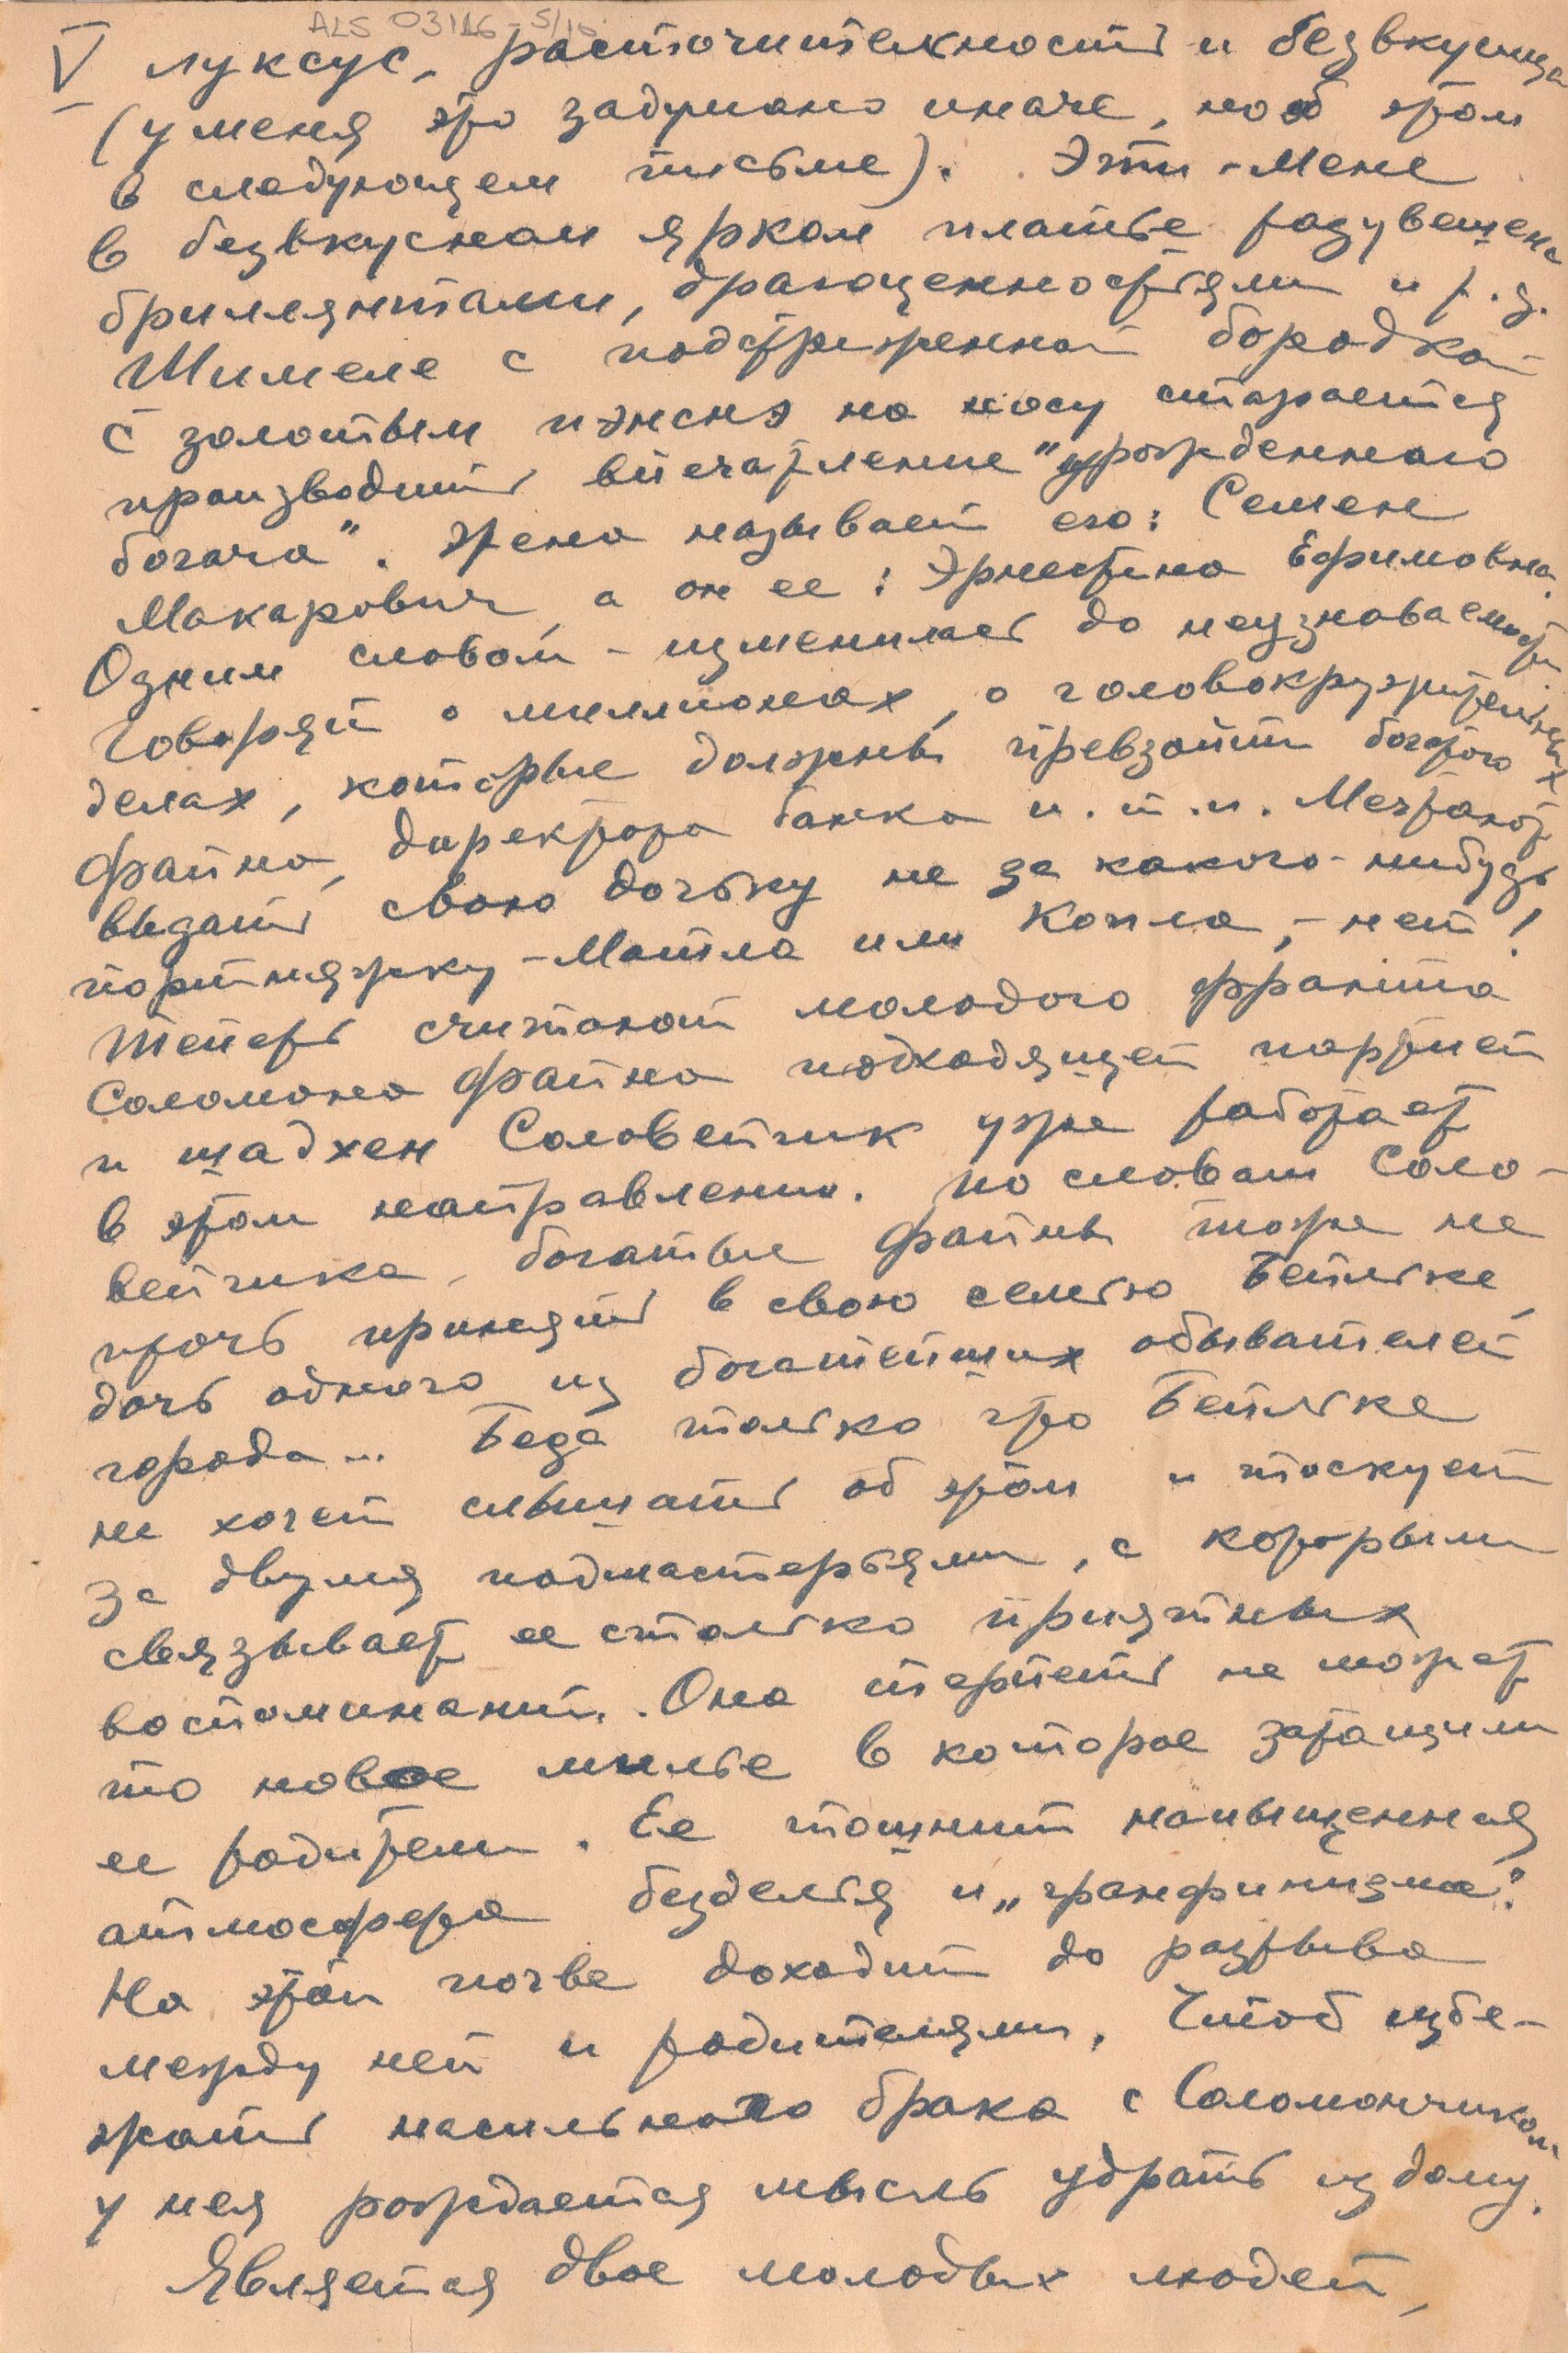 ALS 03116-5/10
V луксус, расточительность и безвкусица
(у меня это задумано иначе, но об этом
в следующем письме). Эти-Мене
в безвкусном ярком платье разувешена
бриллянтами, драгоценностями и т.д.
Шимеле с подстриженной бородкой
с золотым пэнснэ на носу старается
производить впечатление "урожденного
богача". Жена называет его: Семен
Макарович, а он ее: Эрнестина Ефимовна.
Одним словом - изменилась до неузнаваемости.
Говорят о миллионах, о головокружительных
делах, которые должны превзойти богатого
Файна, директора банка и.т.п. Мечтают
выдать свою дочьку не за какого-нибудь
портняжку-Мотла или Копла, - нет!
Теперь считают молодого франта
Соломона Файна подходящей партией
и шадхен Соловейчик уже работает
в этом направлении. По словам Соло-
вейчика, богатые Файны тоже не
прочь принять в свою семью Бейльке,
дочь одного из богатейших обывателей
города... Беда только что Бейльке
не хочет слышать об этом и тоскует
за двумя подмастерьями, с которыми
связывает ее столько приятных
воспоминаний. Она терпеть не может
то новое милье в которое затащили
ее родители. Ее тошнит напыщенная
атмосфера безделья и „гранфинизма".
На этой почве доходит до разрыва
между ней и родителями. Чтоб избе-
жать насильного брака с Соломончиком
у нея рождается мысль удрать из дому.
Является двое молодых людей,